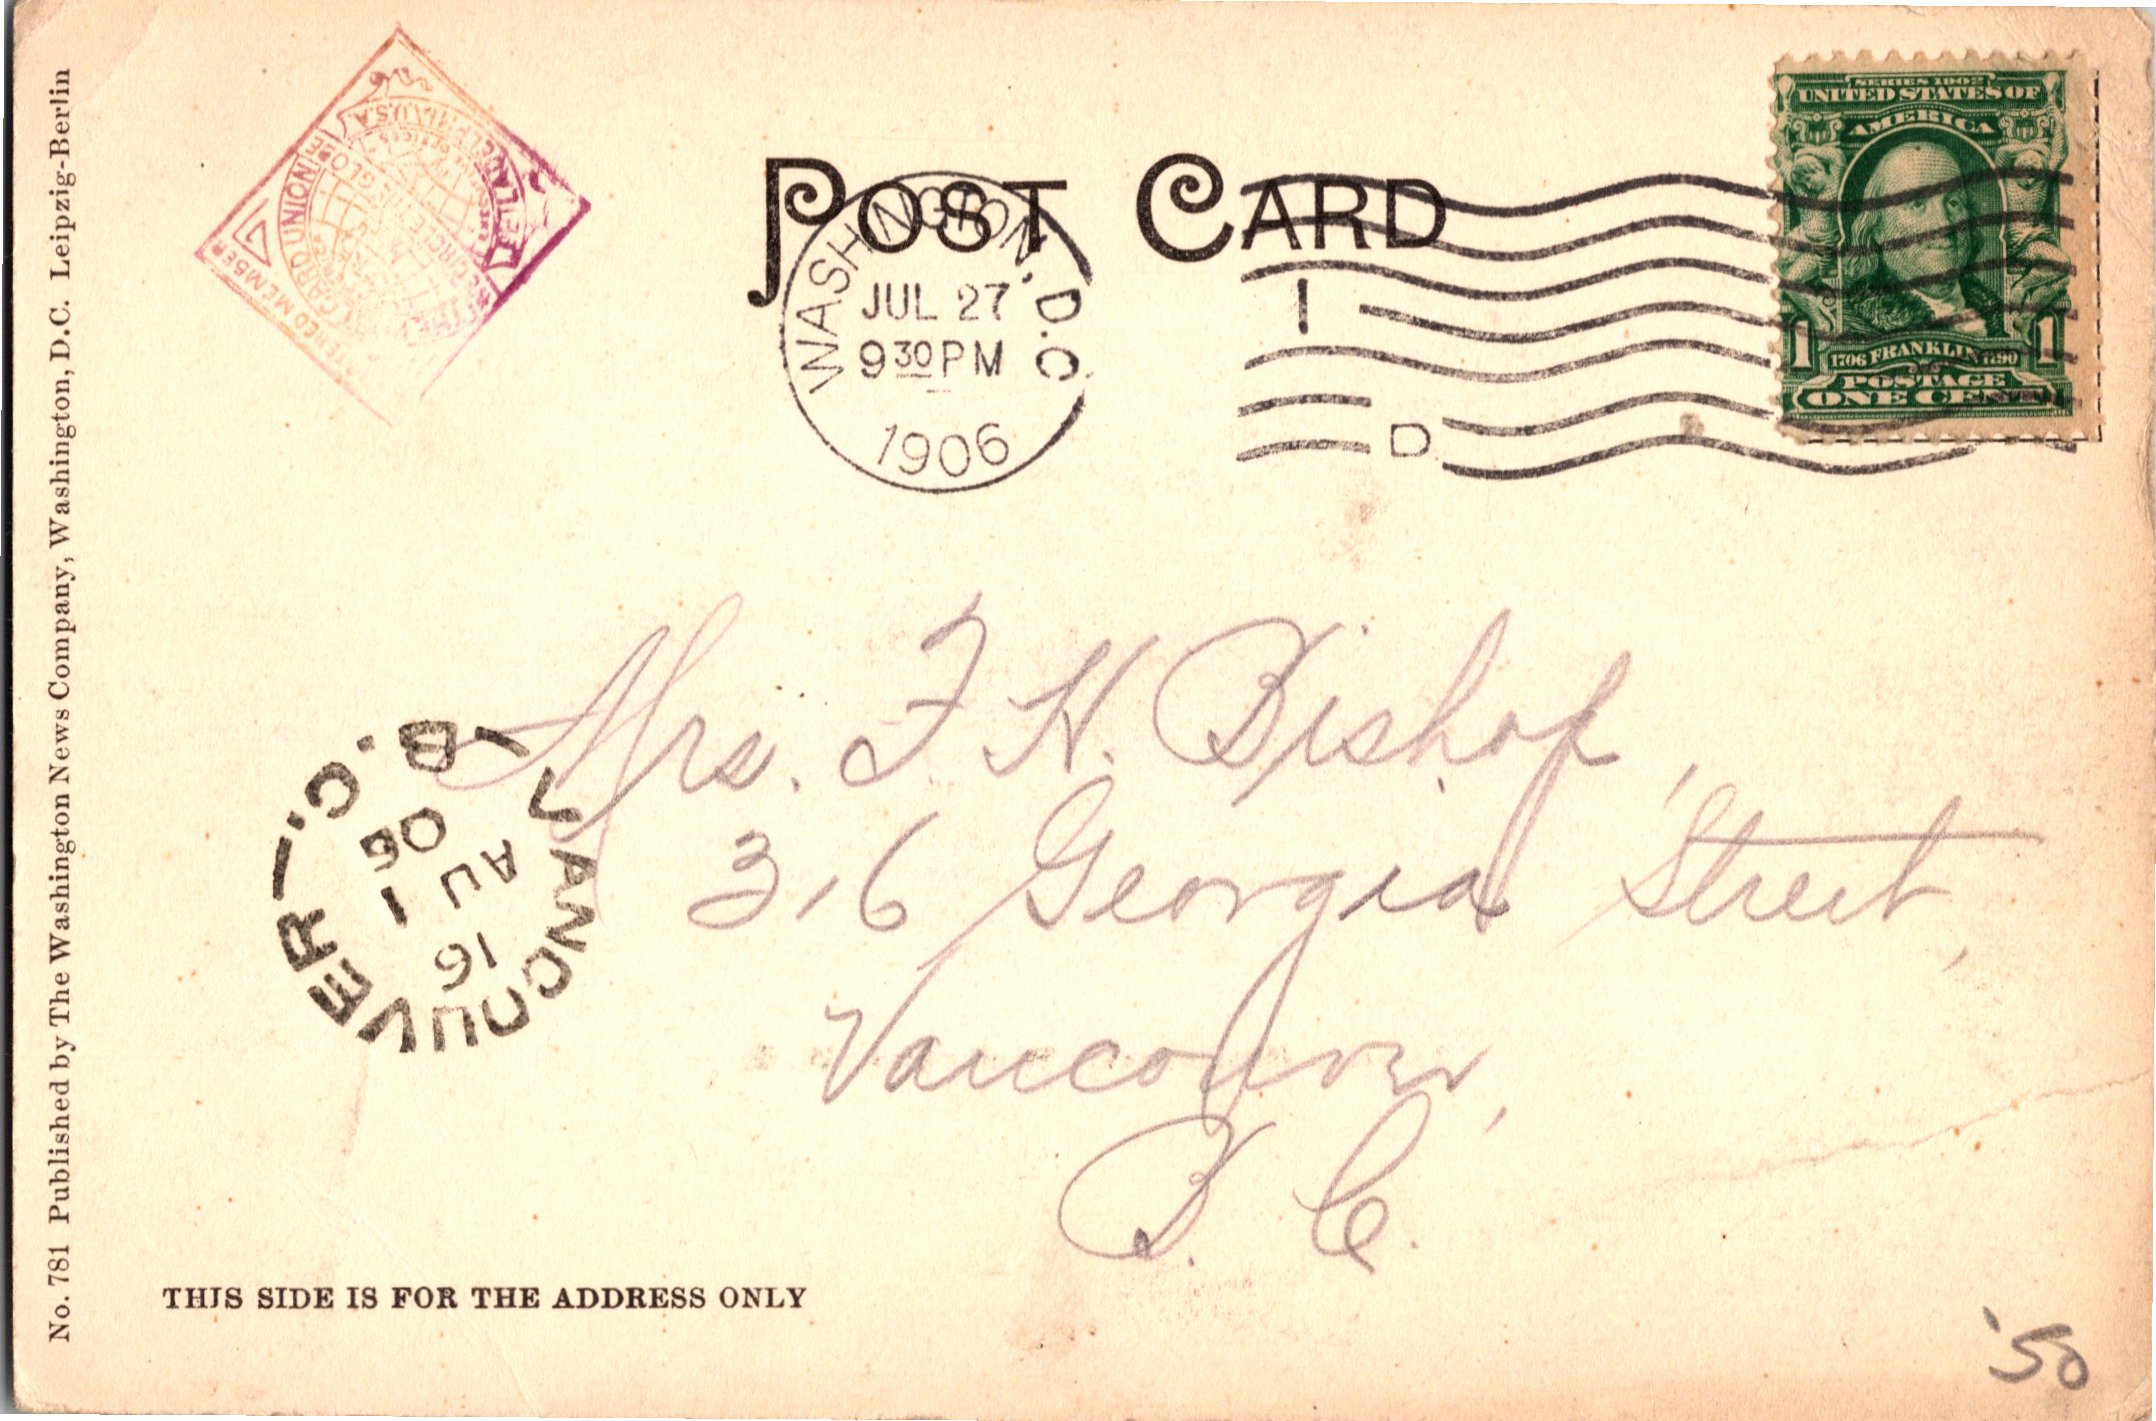 No. 781 Published by The Washington News Company, Washington, D.C. Leipzig-Berlin
POST CARD
WASHINGTON, D.C.
JUL 27
9 30 PM
1906
1
D
SERIES 1902
UNITED STATES OF
AMERICA
1 1
1706 FRANKLIN 1790
POSTAGE
ONE CENT
CARD UNION
MEMBER
PHILADELPHIA, U.S.A.
CIRCLE THE GLOBE
Mrs. F. H. Bishop,
316 Georgia Street,
Vancouver,
B. C.
VANCOUVER B.C.
16
AU 1
06
THIS SIDE IS FOR THE ADDRESS ONLY
'50